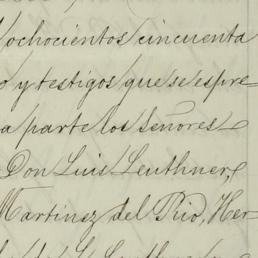 ochocientos cincuenta
o y testigos que se espre-
a parte los Señores
Don Luis Leuthner,
Martinez del Rio, Her-